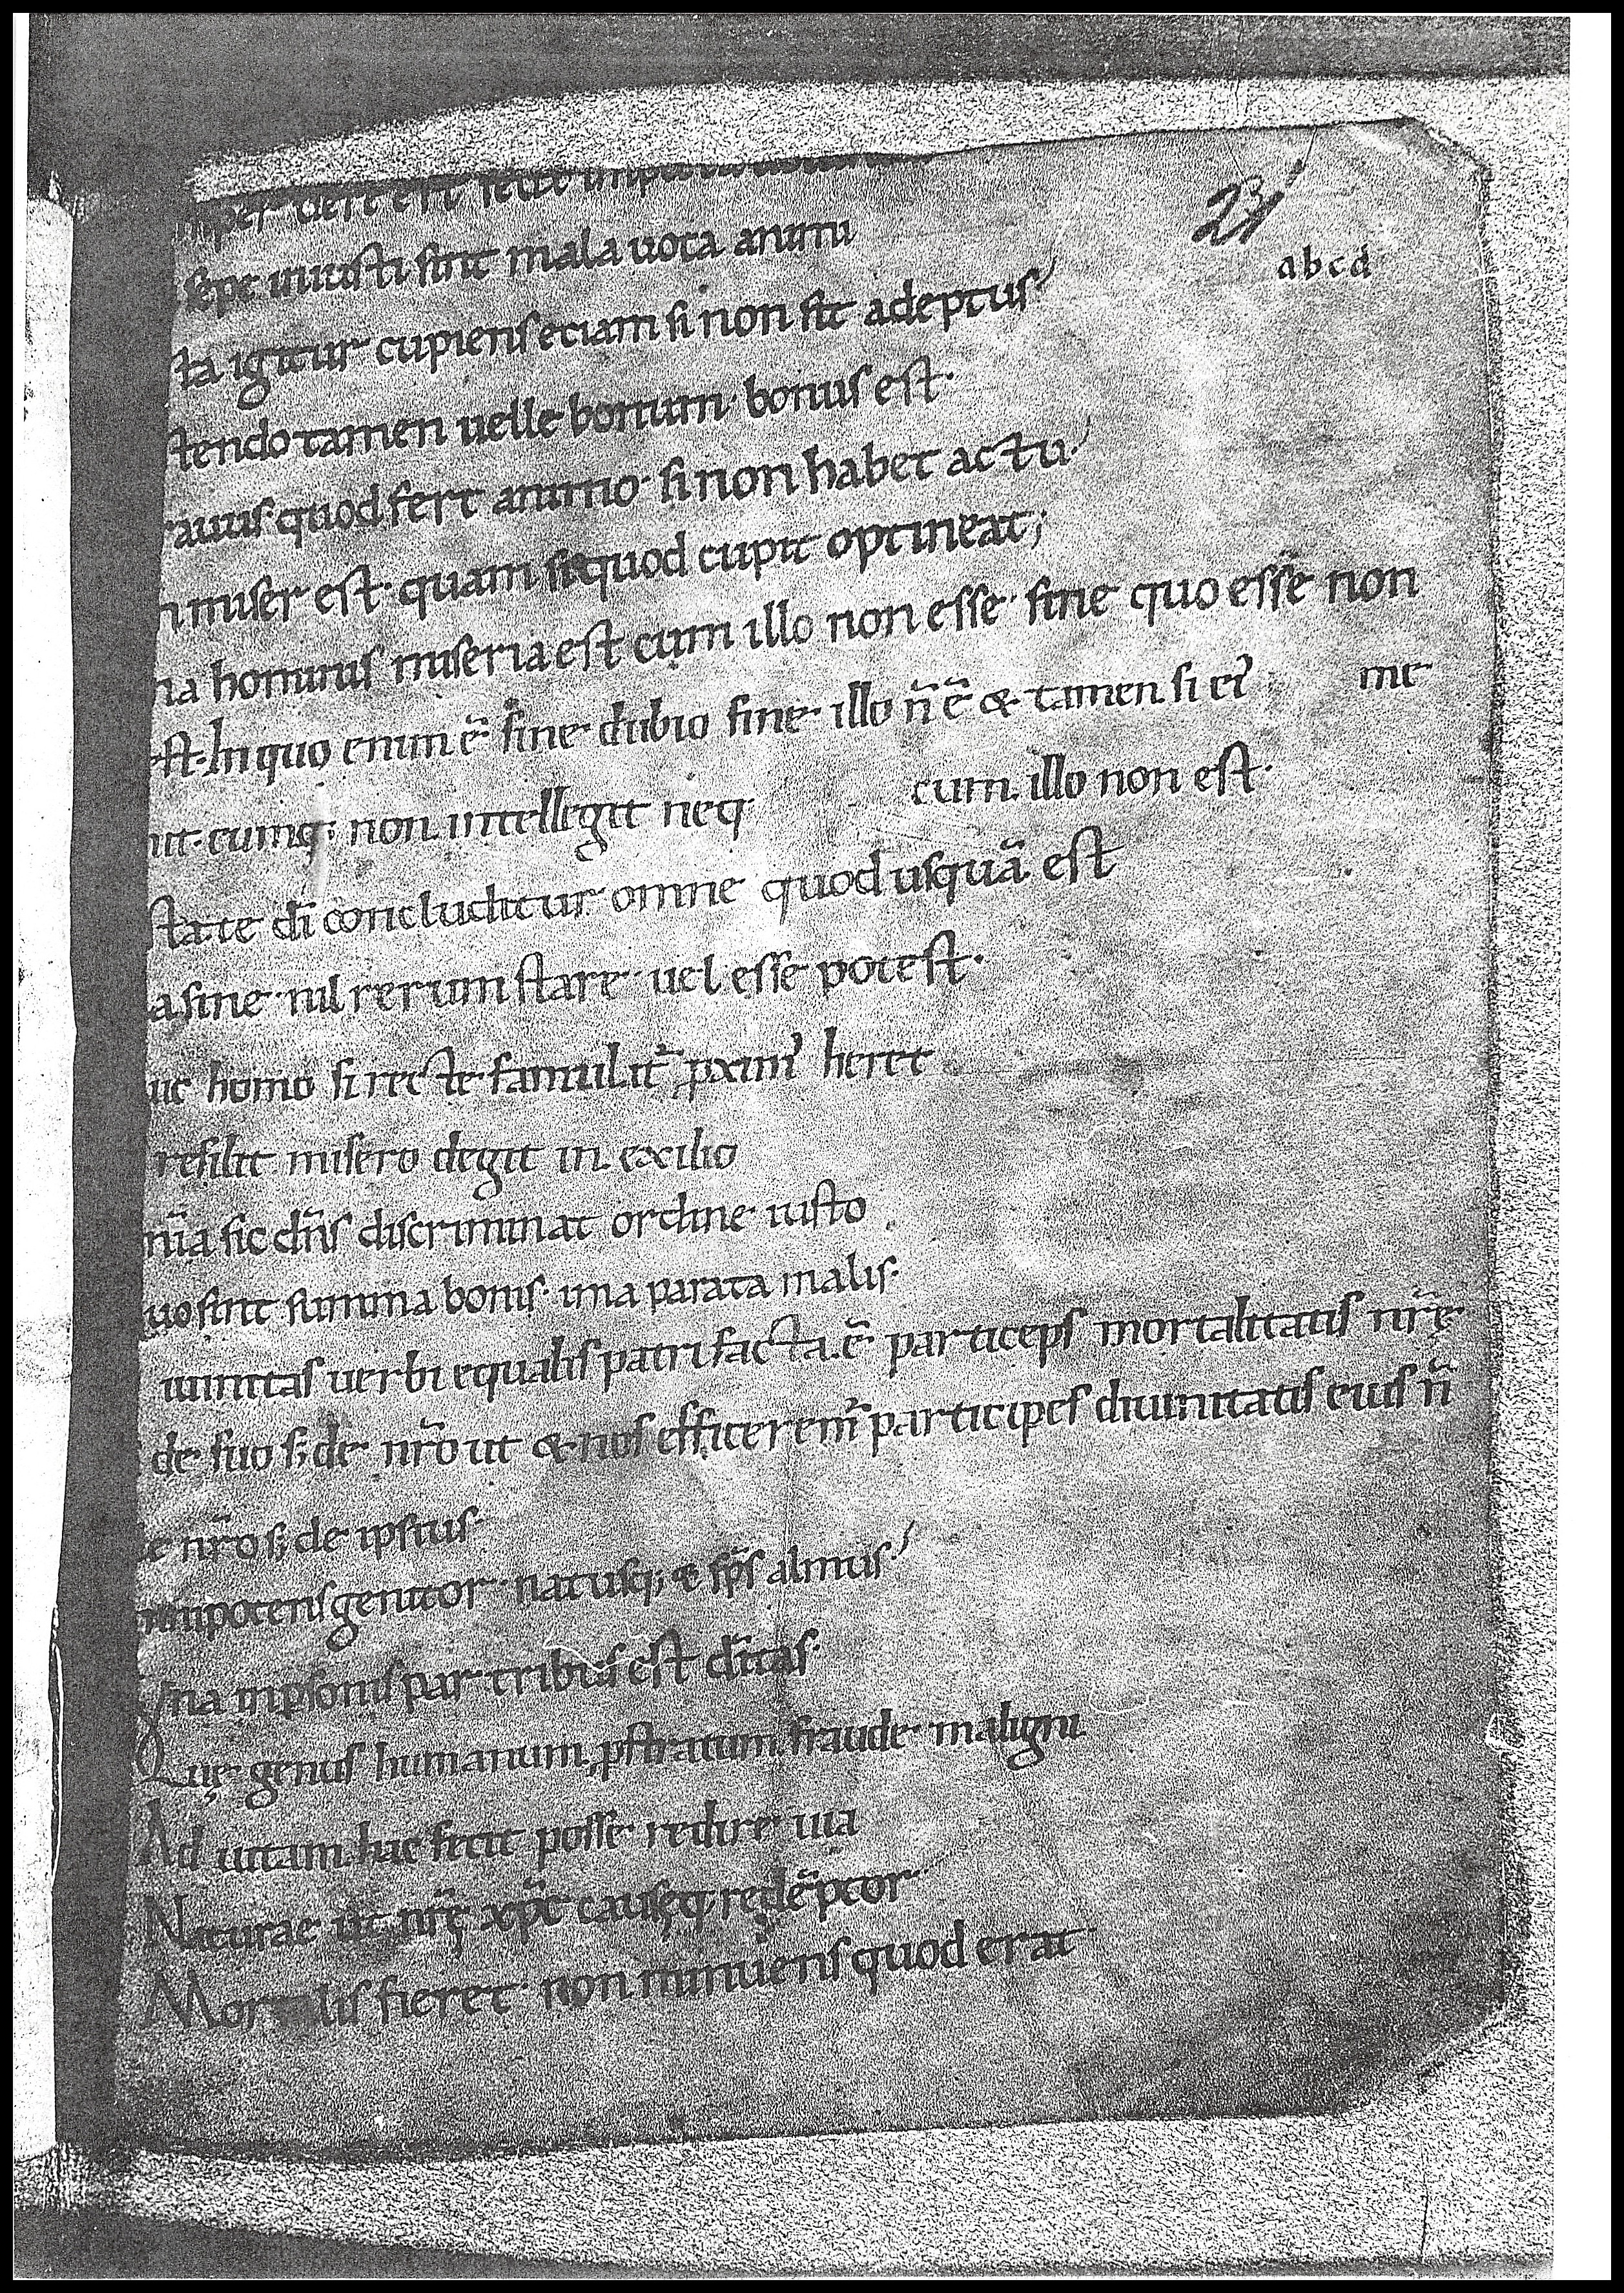 23
abcd
mper deest est
sepe iniusti sint mala uota animi
sta igitur cupiens etiam si non sit adeptus
tendo tamen uelle bonum· bonus est·
rauus· quod fert animo· si non habet actu·
n miser est· quam si quod cupit optineat;
na hominis miseria est cum illo non esse· sine quo esse non
est· In quo enim ē sine dubio sine illo n̄ ē & tamen si ei me
nit· cumq; non intellegit neq· cum illo non est·
state dī concluditur omne quod usquā est
a sine nil rerum stare uel esse potest·
uic homo si recte famulit̄ pxim' heret
resilit misero degit in exilio
mn̄ia sic dn̄s discriminat ordine iusto
uo sint summa bonis· ima parata malis·
iuinitas uerbi equalis patri facta·ē particeps mortalitatis nr̄ę
de suo s; de nr̄o ut & nos efficerem' participes diuinitatis eius n̄
e nr̄o s; de ipsius·
mnipotens genitor· natusq; & sp̄s almus·
Vna in psonis par tribus est dītas·
Quę genus humanum pstratum fraude maligni
Ad uitam hac fecit posse redire uia
Naturae ut nr̄ę xp̄c causęq; redēptor
Mortalis fieret· non minuens quod erat